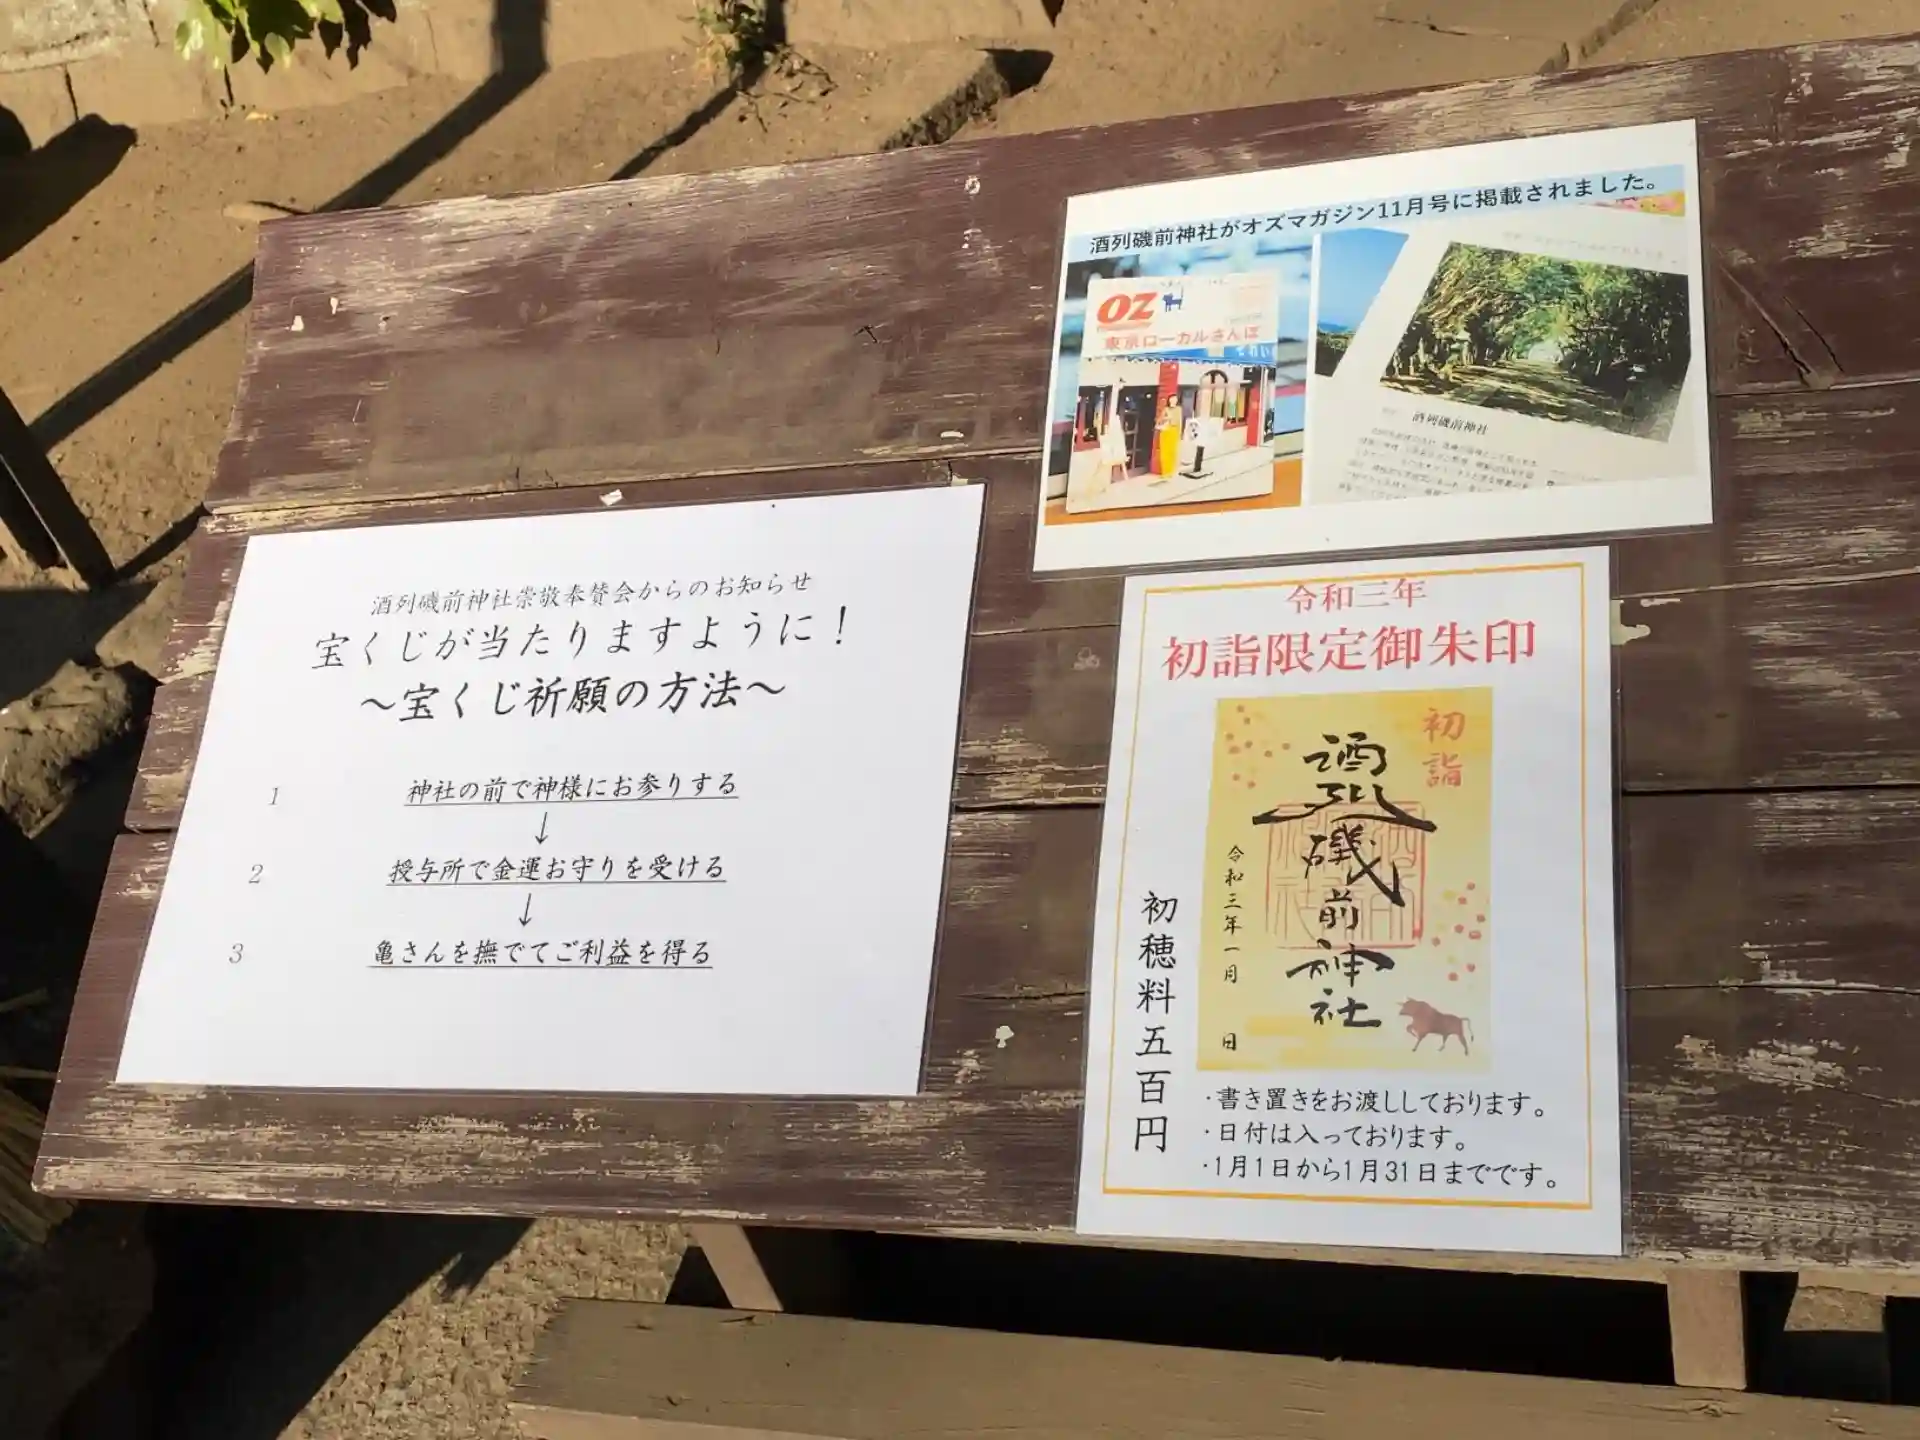 酒列磯前神社がオズマガジン11月号に掲載されました。
OZ
東京ローカルさんぽ
酒列磯前神社
酒列磯前神社崇敬奉賛会からのお知らせ
宝くじが当たりますように!
~宝くじ祈願の方法~
1 神社の前で神様にお参りする
↓
2 授与所で金運お守りを受ける
↓
3 亀さんを撫でてご利益を得る
令和三年
初詣限定御朱印
初詣
酒列磯前神社
令和三年一月 日
初穂料五百円
・書き置きをお渡ししております。
・日付は入っております。
・1月1日から1月31日までです。